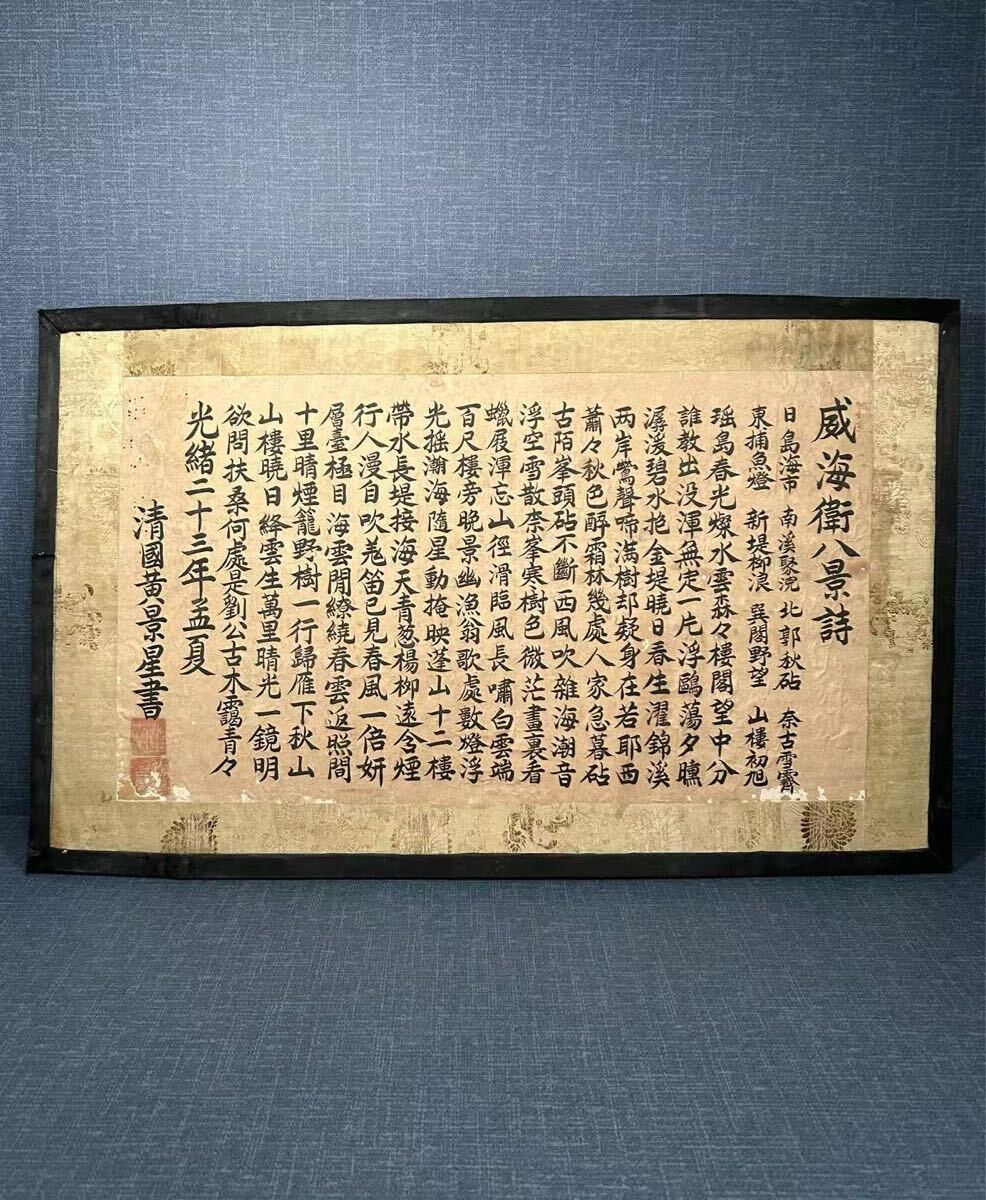 威海衛八景詩
日島海市　南溪聚浣　北郭秋砧　奈古雪霽
東捕魚燈　新堤柳浪　巽閣野望　山樓初旭
瑶島春光燦水雲森々樓閣望中分
誰教出没渾無定一片浮鷗蕩夕曛
潺湲碧水抱金堤曉日春生濯錦溪
两岸鶯聲啼滿樹却疑身在若耶西
蕭々秋色醉霜林幾處人家急暮砧
古陌峯頭砧不斷西風吹雜海潮音
浮空雪散奈峯寒樹色微茫畫裏看
蠟屐渾忘山徑滑臨風長嘯白雲端
百尺樓旁晚景幽漁翁歌處數燈浮
光摇瀚海隨星動掩映蓬山十二樓
帶水長堤接海天青葱楊柳遠含煙
行人漫自吹羗笛已見春風一倍妍
層臺極目海雲閒繚繞春雲返照間
十里晴煙籠野樹一行歸雁下秋山
山樓曉日絳雲生萬里晴光一鏡明
欲問扶桑何處是劉公古木靄青々
光緒二十三年孟夏
清國黃景星書